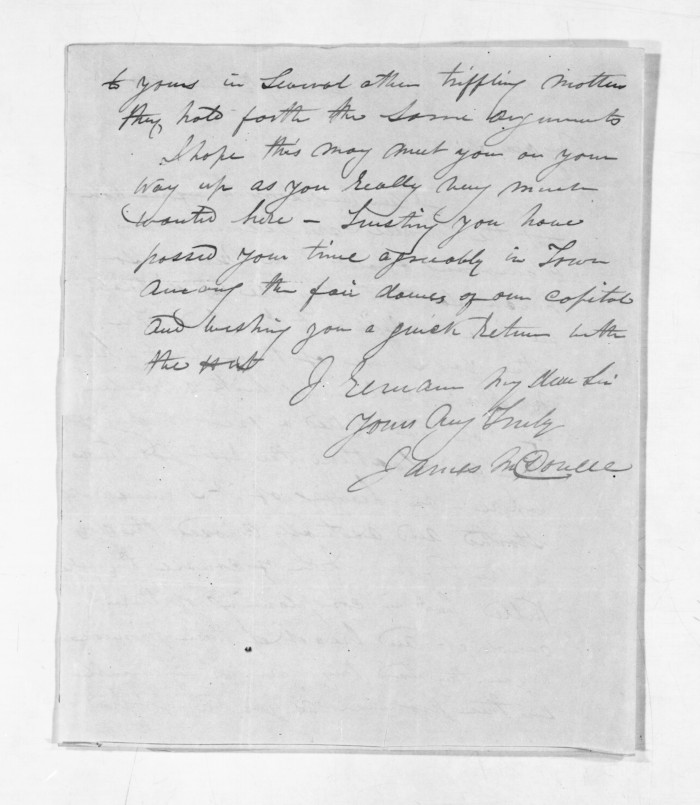 to yours in Several other triffling matters
they hold forth the same arguments
I hope this may meet you on your
way up as you really very much
wanted here – Trusting you have
passed your time agreeably in Town
among the fair dames of our Capitol
and wishing you a quick return with
the
I remain My dear Sir
Yours Very Truly
James McDonell